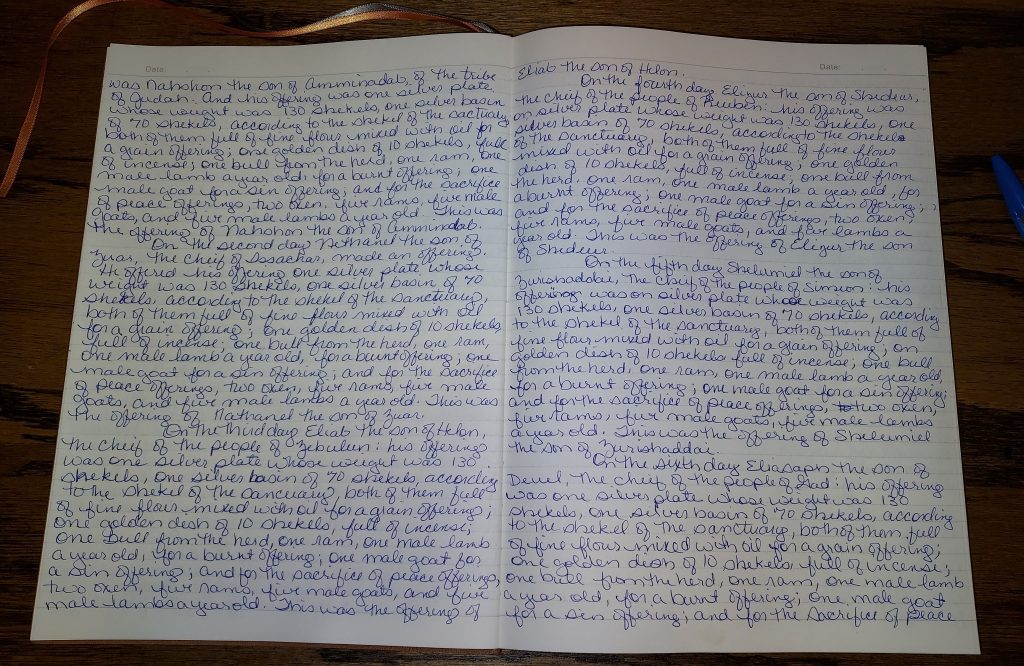 Date:
was Nahshon the son of Amminadab, of the tribe
of Judah. And his offering was one silver plate
whose weight was 130 shekels, one silver basin
of 70 shekels, according to the shekel of the sactuary
both of them full of fine flour mixed with oil for
a grain offering; one golden desh of 10 shekels, full
of incense; one bull from the herd, one ram, one
male lamb a year old for a burnt offering; one
male goat for a sin offering; and for the sacrifice
of peace offerings, two oxen, five rams, five male
goats, and five male lambs a year old. This was
the offering of Nahshon the son of Ammindab.
On the second day Nethanel the son of
Zuar, the chief of Issachar, made an offering.
He offered his offering one silver plate whose
weight was 130 shekels, one silver basin of 70
shekels, according to the shekel of the sanctuary,
both of them full of fine flour mixed with oil
for a grain offering; one golden desh of 10 shekels,
full of incense; one bull from the herd, one ram,
one male lamb a year old, for a burnt offering; one
male goat for a sin offering; and for the sacrifice
of peace offerings, two oxen, five rams, five male
goats, and five male lambs a year old. This was
the offering of Nathanel the son of Zuar.
On the third day Eliab the son of Helon,
the cheif of the people of Zebulun: his offering
was one silver plate whose weight was 130
shekels, one silver basin of 70 shekels, according
to the shekel of the sancuary, both of them full
of fine flour mixed with oil for a grain offering;
one golden desh of 10 shekels, full of incense;
one bull from the herd, one ram, one male lamb
a year old, for a burnt offering; one male goat for
a sin offering; and for the sacrifice of peace offerings,
two oxen, five rams, five male goats, and five
male lambs a year old. This was the offering of
Date:
Eliab the son of Helon.
On the fourth day Elizur the son of Shedeur,
the chief of the people of Reuben: his offering was
on silver plate whose weight was 130 shekels, one
silver basin of 70 shekels, according to the shekel
of the sanctuary, both of them full of fine flour
mixed with oil for a grain offering; one golden
desh of 10 shekels, full of incense; one bull from
the herd, one ram, one male lamb a year old, for
a burnt offering; one male goat for a sin offering;
and for the sacrifice of peace offerings, two oxen
five rams, five male goats, and five lambs a
year old. This was the offering of Elizur the son
of Shedeur.
On the fifth day Shelumiel the son of
Zurishaddai, the cheif of the people of Simeon: his
offering was on silver plate whose weight was
130 shekels, one silver basin of 70 shekels, according
to the shekel of the sanctuary, both of them full of
fine flour mixed with oil for a grain offering; on
golden desh of 10 shekels full of incense; one bull
from the herd, one ram, one male lamb a year old,
for a burnt offering; one male goat for a sin offering;
and for the sacrifice of peace offerings, two oxen,
five rams, five male goats, five male lambs
a year old. This was the offering of Shelumiel
the son of Zurishaddai.
On the sixth day Eliasaph the son of
Deuel, the cheif of the people of Gad: his offering
was one silver plate whose weight was 130
shekels, one silver basin of 70 shekels, according
to the shekel of the sanctuary, both of them full
of fine flour mixed with oil for a grain offering;
one golden desh of 10 shekels full of incense;
one bull from the herd, one ram, one male lamb
a year old, for a burnt offering; one male goat
for a sin offering; and for the sacrifice of peace